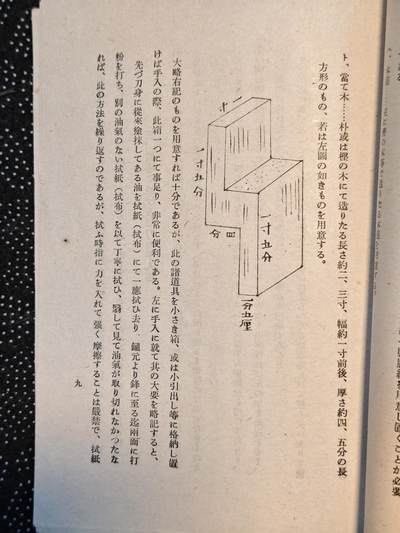 ト、當て木……朴或は樫の木にて造りたる長さ約二、三寸、幅約一寸前後、厚さ約四、五分の長
方形のもの、若は左圖の如きものを用意する。
一寸
一寸五分
四分
一寸五分
一分五厘
大略右記のものを用意すれば十分であるが、此の諸道具を小さき箱、或は小引出し等に格納し置
けば手入の際、此箱一つにて事足り、非常に便利である。左に手入に就て其の大要を略記すると、
先づ刀身に從來塗抹してある油を拭紙（拭布）にて一應拭ひ去り、鎺元より鋒に至る迄兩面に打
粉を打ち、別の油氣のない拭紙（拭布）を以て丁寧に拭ひ、翳して見て油氣が取り切れなかつたな
れば、此の方法を繰り返すのであるが、拭ふ時指に力を入れて强く摩擦することは嚴禁で、拭紙
九